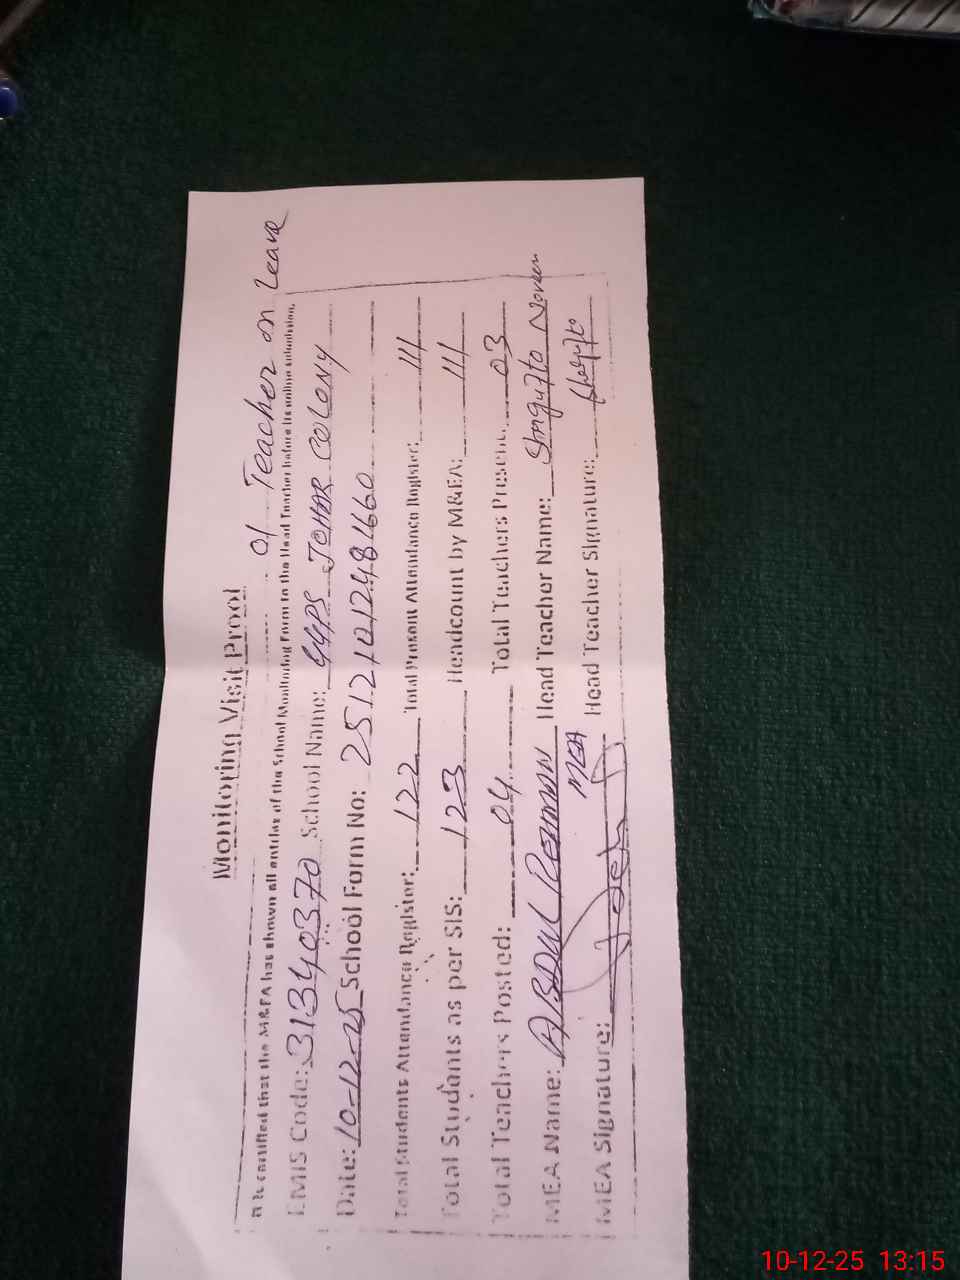 01 Teacher on Leave
Monitoring Visit Proof
It is certified that the M&EA has shown all entries of the School Monitoring Form to the Head Teacher before its online submission.
EMIS Code: 31340370 School Name: GGPS JOHAR COLONY
Date: 10-12-25 School Form No: 25121012481660
Total Students Attendance Register: 122 Total Present Attendance Register: 111
Total Students as per SIS: 123 Headcount by M&EA: 111
Total Teachers Posted: 04 Total Teachers Present: 03
MEA Name: ABDUL REHMAN MEA Head Teacher Name: Shagufta Noreen
MEA Signature: Head Teacher Signature: Shagufta
10-12-25 13:15